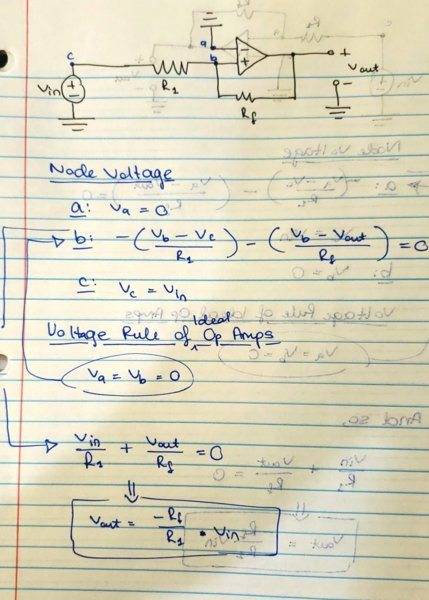 c a − +
b +
Vin R1 Vout
Rf −
Node Voltage
a: Va = 0
b: −(Vb − Vc / R1) − (Vb − Vout / Rf) = 0
c: Vc = Vin
Voltage Rule of Ideal Op Amps
Va = Vb = 0
Vin / R1 + Vout / Rf = 0
⇓
Vout = −Rf / R1 • Vin